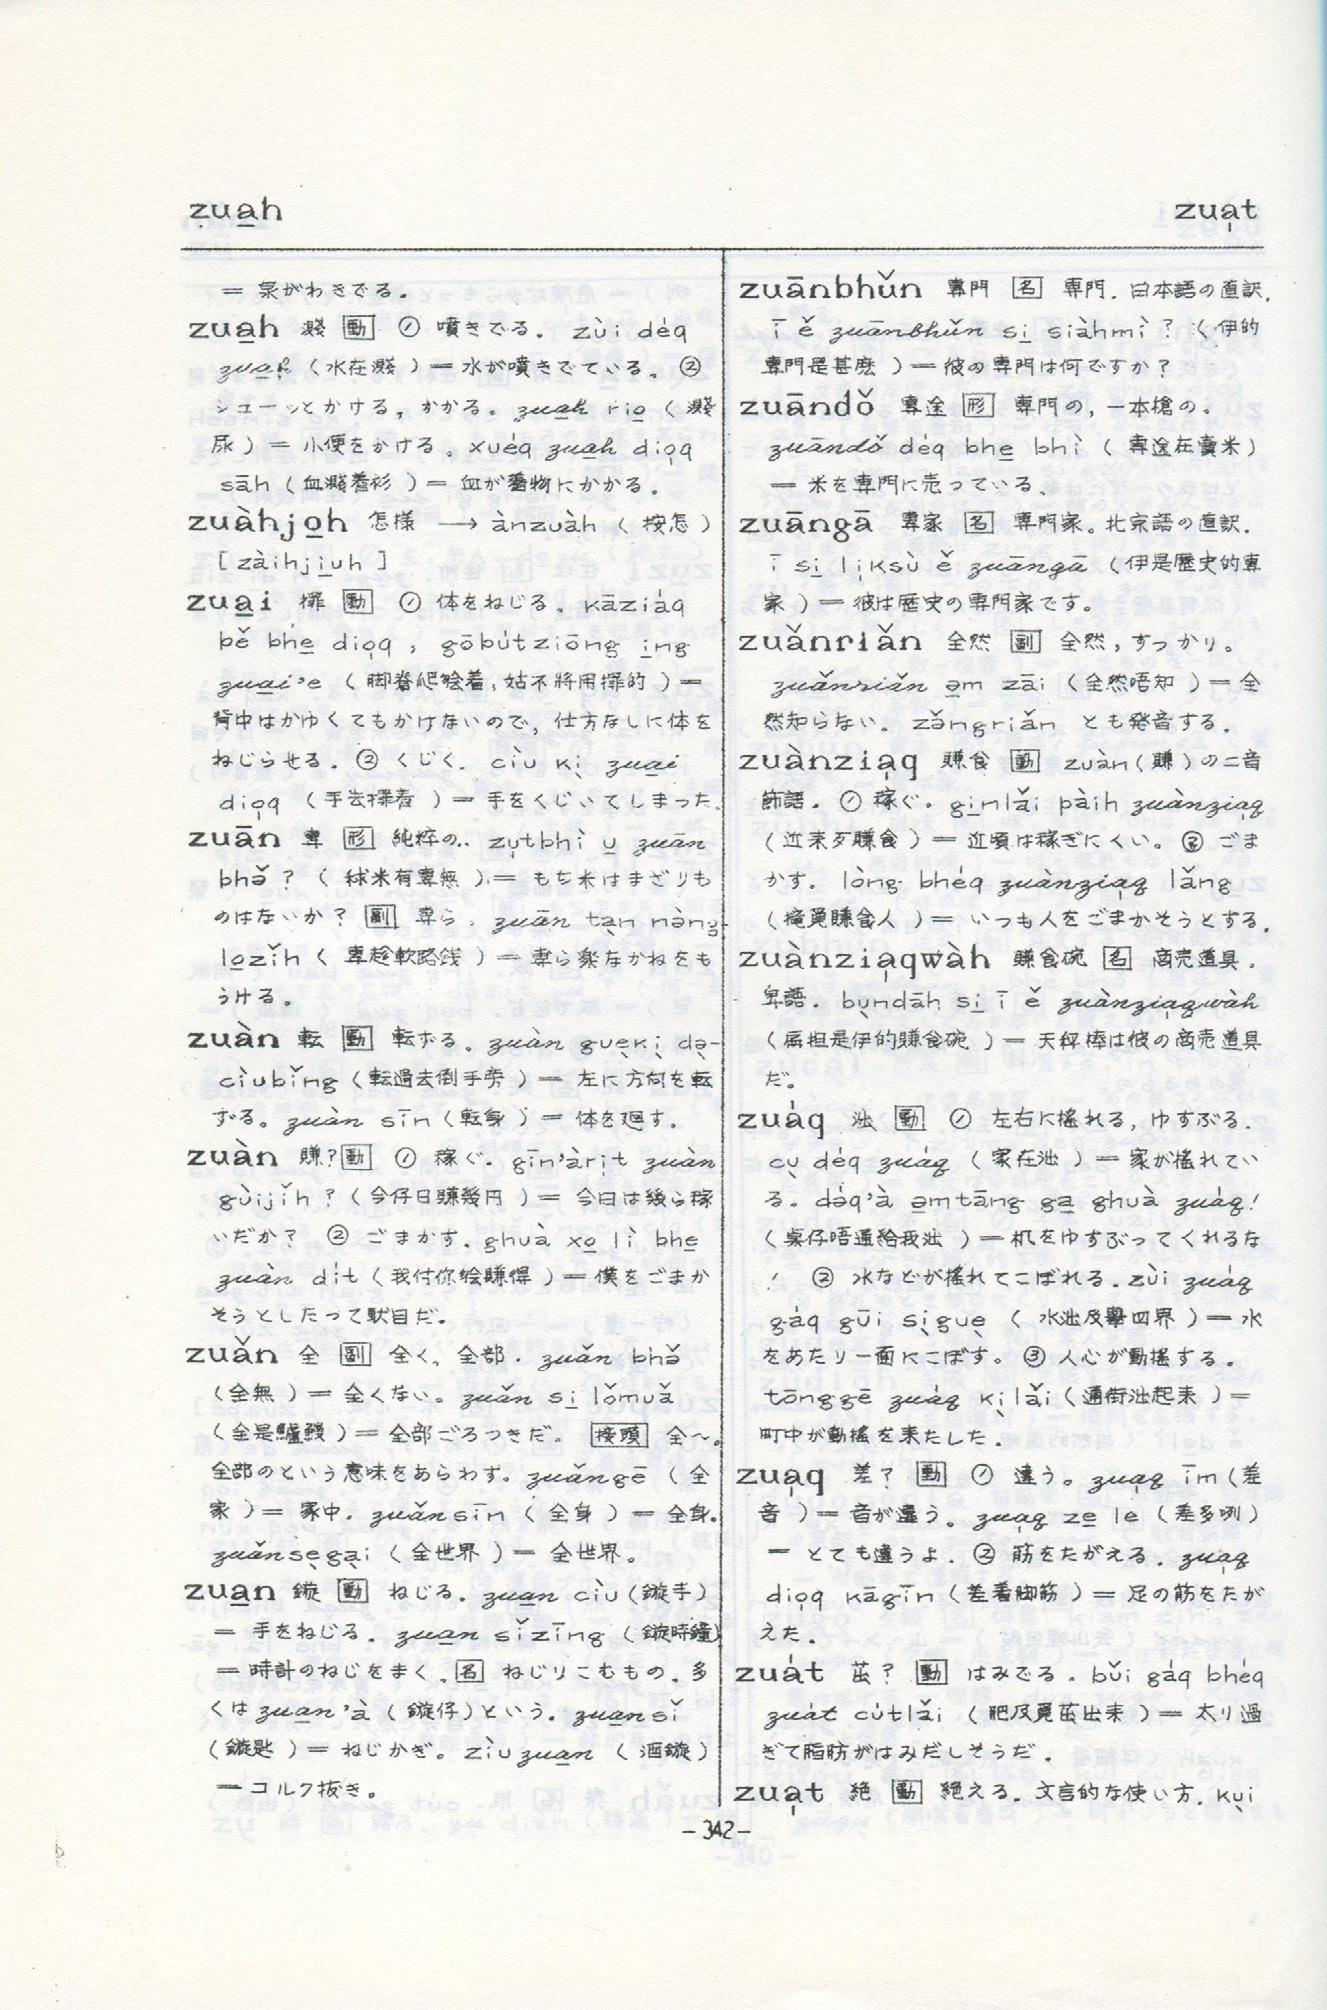 zua̱h
zua̩t
= 泉がわきでる。
zua̱h 濺 動 ① 噴きでる. zùi déq
zua̱h (水在濺) = 水が噴きでている。②
シューッとかける, かかる。zua̱h rio̱ (濺
尿) = 小便をかける。xuéq zua̱h dio̩q
sāh (血濺着衫) = 血が着物にかかる。
zuàhjo̱h 怎様 → ànzuàh (按怎)
[zàihji̱uh]
zua̱i 動 ① 体をねじる。kāziáq
bě bhe̱ dio̩q, gōbútziōng i̱ng
zua̱i'e =
背中はかゆくてもかけないので, 仕方なしに体を
ねじらせる. ② くじく. cìu ki̩ zua̱i
dio̩q = 手をくじいてしまった.
zuān 専 形 純粋の.. zu̩tbhì u̱ zuān
bhə̌? (秫米有専無) = もち米はまざりも
のはないか? 副 専ら. zuān ta̩n nàng-
lo̱zǐh = 専ら楽なかねをも
うける。
zuàn 転 動 転ずる. zuàn gue̩ki̩ də̩-
cìubǐng (転過去倒手旁) = 左に方向を転
ずる。zuàn sīn (転身) = 体を廻す.
zuàn 賺? 動 ① 稼ぐ. gīn'àri̩t zuàn
gùijǐh? (今仔日賺幾円) = 今日は幾ら稼
いだか? ② ごまかす. ghuà xo̱ lì bhe̱
zuàn dít (我付你繪賺得) = 僕をごまか
そうとしたって駄目だ。
zuǎn 全 副 全く, 全部. zuǎn bhə̌
(全無) = 全くない。zuǎn si̱ lǒmuǎ
(全是鱸鰻) = 全部ごろつきだ。 接頭 全〜。
全部のという意味をあらわす。zuǎngē (全
家) = 家中. zuǎnsīn (全身) = 全身.
zuǎnse̩ga̩i (全世界) = 全世界。
zua̱n 鏇 動 ねじる. zua̱n cìu (鏇手)
= 手をねじる. zua̱n sǐzīng (鏇時鐘)
= 時計のねじをまく. 名 ねじりこむもの. 多
くは zua̱n'à (鏇仔) という. zua̱nsǐ
(鏇匙) = ねじかぎ。zìuzua̱n (酒鏇)
= コルク抜き。
zuānbhǔn 専門 名 専門. 日本語の直訳.
ī ě zuānbhǔn si̱ siàhmì? (伊的
専門是甚麼) = 彼の専門は何ですか?
zuāndǒ 専途 形 専門の, 一本槍の.
zuāndǒ déq bhe̱ bhì (専途在賣米)
= 米を専門に売っている.
zuāngā 専家 名 専門家. 北京語の直訳.
ī si̱ li̩ksù ě zuāngā (伊是歴史的専
家) = 彼は歴史の専門家です。
zuǎnriǎn 全然 副 全然, すっかり。
zuǎnriǎn ə̱m zāi (全然唔知) = 全
然知らない。zǎngriǎn とも発音する.
zuànzia̩q 賺食 動 zuàn (賺) の二音
節語. ① 稼ぐ。gi̱nlǎi pàih zuànzia̩q
(近来歹賺食) = 近頃は稼ぎにくい。② ごま
かす. lòng bhéq zuànzia̩q lǎng
= いつも人をごまかそうとする.
zuànzia̩qwàh 賺食碗 名 商売道具.
卑語. bu̩ndāh si̱ ī ě zuànzia̩qwàh
= 天秤棒は彼の商売道具
だ。
zuáq 動 ① 左右に揺れる, ゆすぶる.
cu̩ déq zuáq = 家が揺れてい
る. dəq'à ə̱mtāng ga̱ ghuà zuáq!
= 机をゆすぶってくれるな
! ② 水などが揺れてこぼれる. zùi zuáq
gáq gūi si̩gue̩ = 水
をあたり一面にこぼす。③ 人心が動揺する.
tōnggē zuáq ki̩lǎi =
町中が動揺を来たした.
zua̩q 差? 動 ① 違う。zua̩q īm (差
音) = 音が違う。zua̩q ze̱ le (差多咧)
= とても違うよ. ② 筋をたがえる. zua̩q
dio̩q kāgīn (差着脚筋) = 足の筋をたが
えた.
zuát 茁? 動 はみでる. bǔi gáq bhéq
zuát cútlǎi (肥及覓茁出来) = 太り過
ぎて脂肪がはみだしそうだ.
zua̩t 絶 動 絶える. 文言的な使い方. ku̩i
-342-